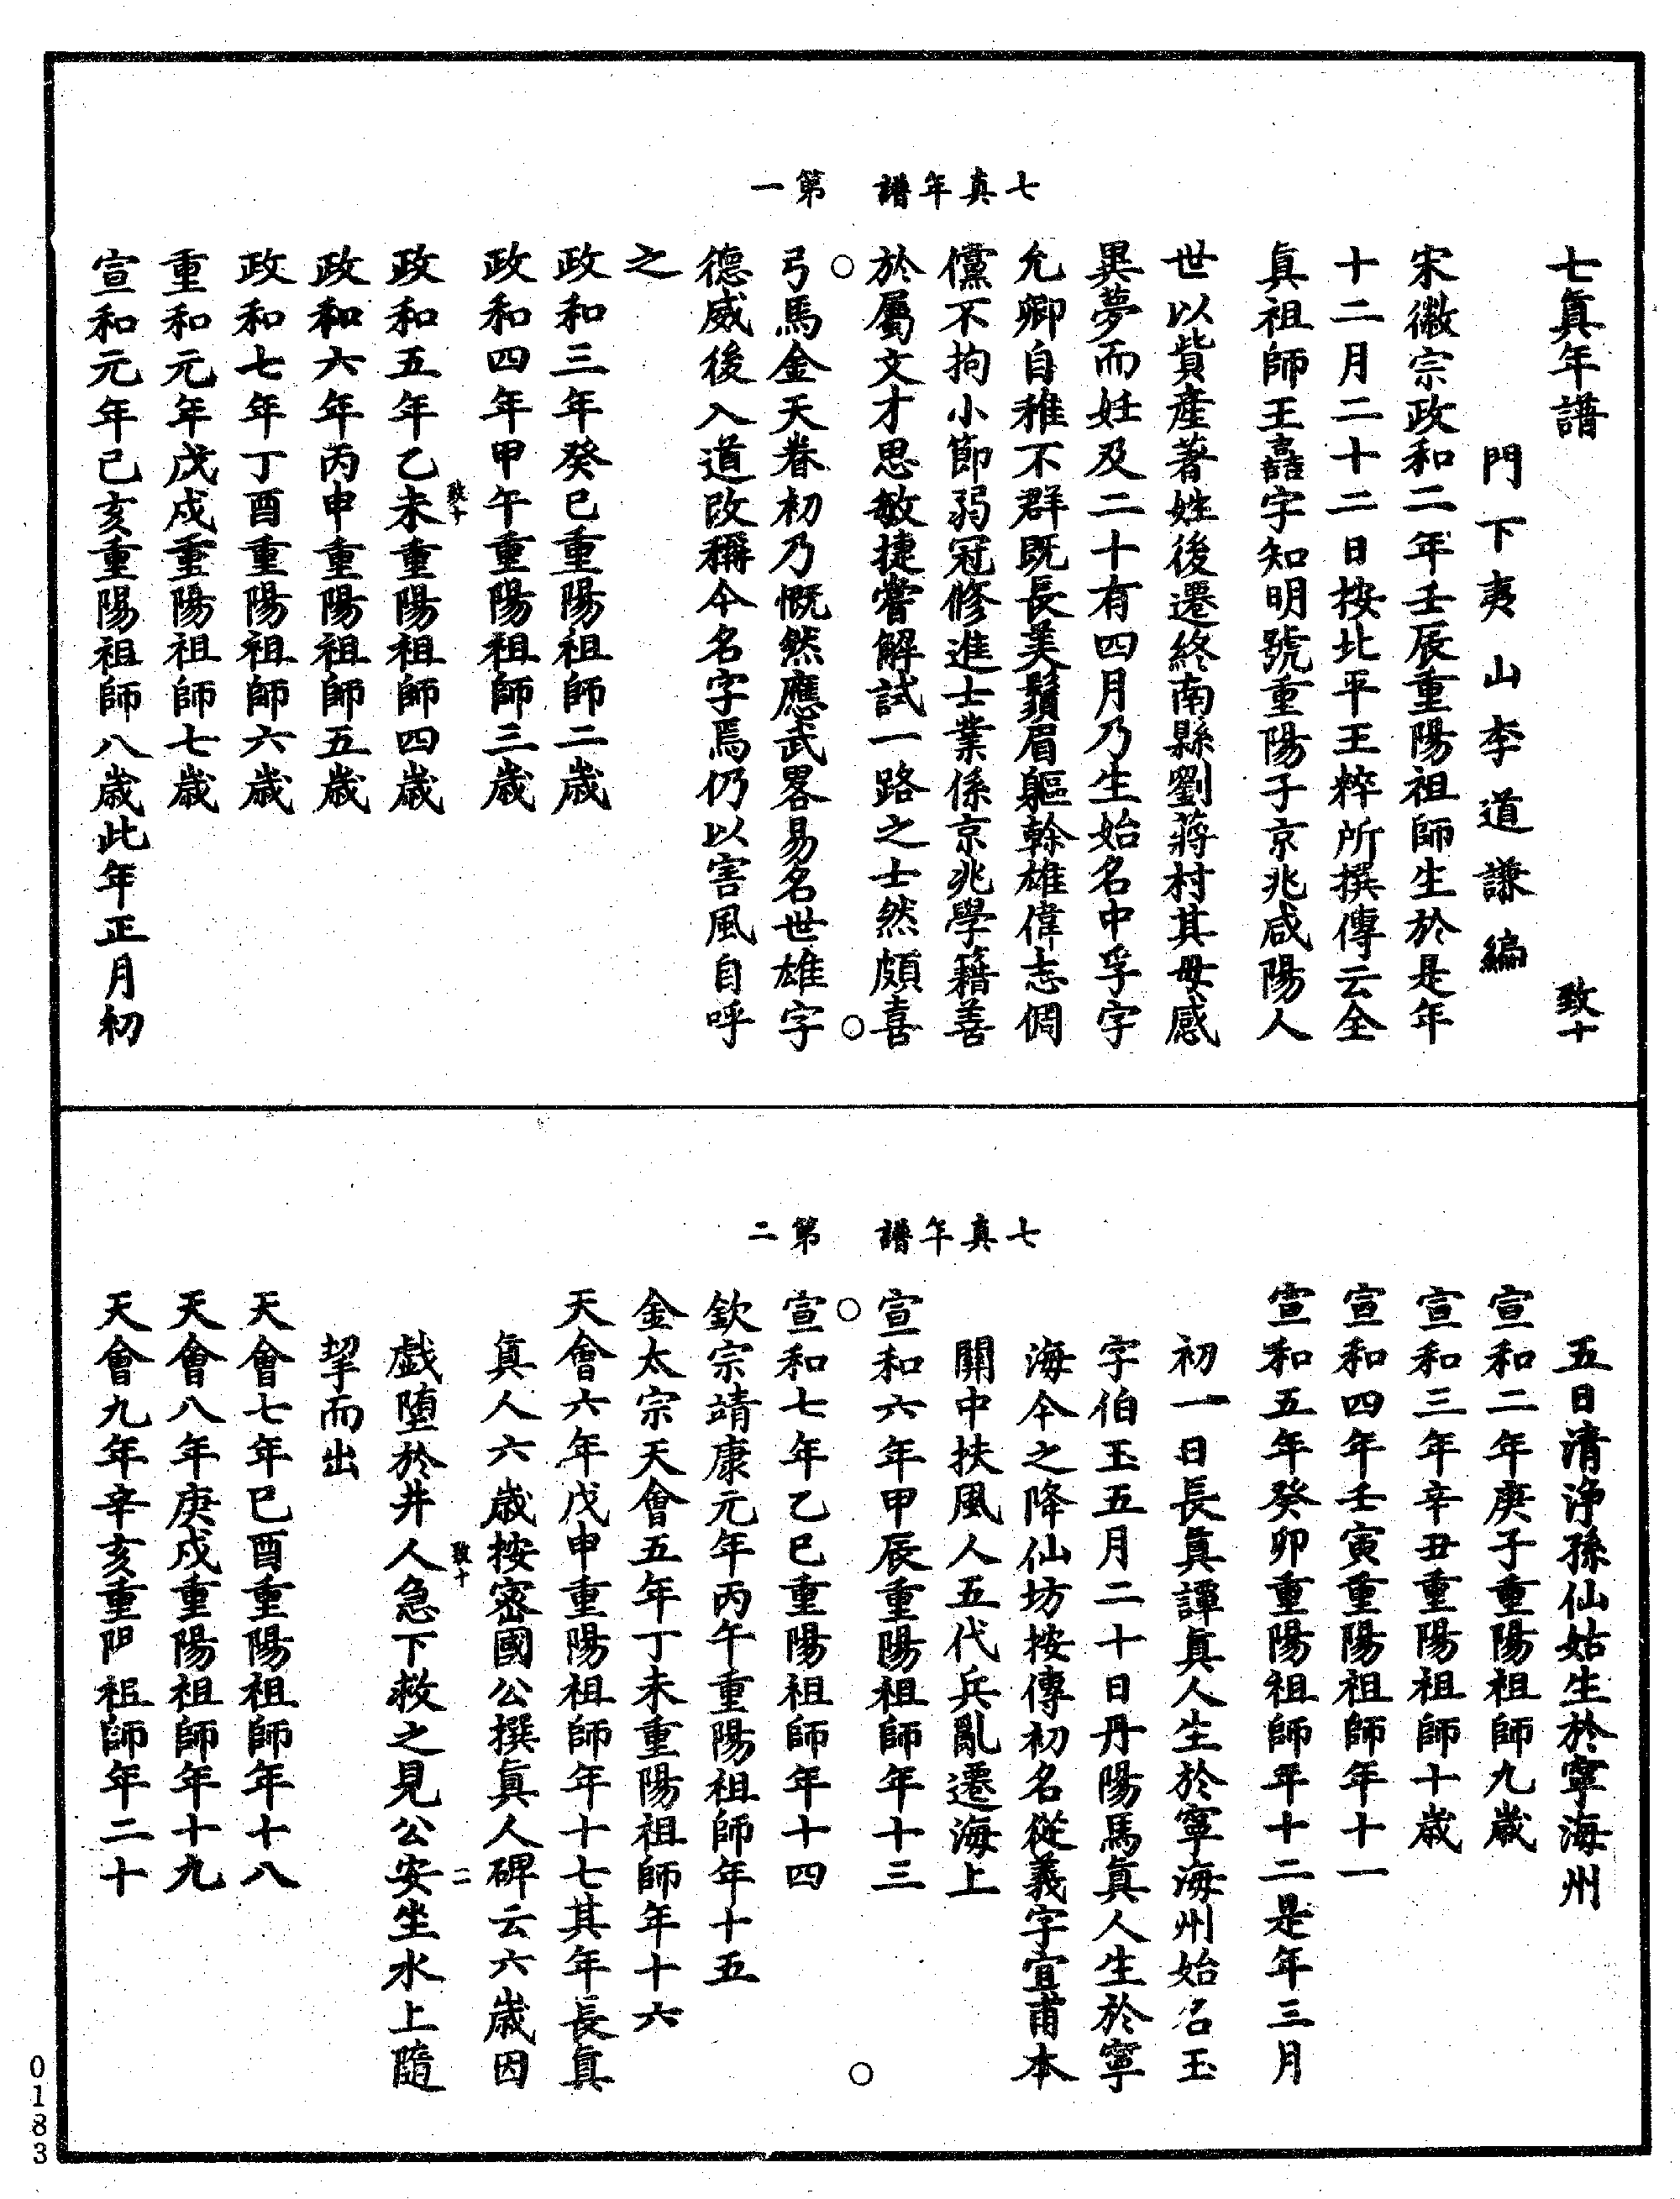 七真年譜　第一
七眞年譜
致十
門下夷山李道謙編
宋徽宗政和二年壬辰重陽祖師生於是年
十二月二十二日按北平王粹所撰傳云全
眞祖師王嚞字知明號重陽子京兆咸陽人
世以貲產著姓後遷終南縣劉蔣村其母感
異夢而妊及二十有四月乃生始名中孚字
允卿自稚不群既長美鬚眉軀幹雄偉志倜
儻不拘小節弱冠修進士業係京兆學籍善
於屬文才思敏捷嘗解試一路之士然頗喜
弓馬金天眷初乃慨然應武畧易名世雄字
德威後入道改稱今名字焉仍以害風自呼
之
政和三年癸巳重陽祖師二歲
政和四年甲午重陽祖師三歲
致十
政和五年乙未重陽祖師四歲
政和六年丙申重陽祖師五歲
政和七年丁酉重陽祖師六歲
重和元年戊戌重陽祖師七歲
宣和元年己亥重陽祖師八歲此年正月初
七真年譜　第二
五日清淨孫仙姑生於寧海州
宣和二年庚子重陽祖師九歲
宣和三年辛丑重陽祖師十歲
宣和四年壬寅重陽祖師年十一
宣和五年癸卯重陽祖師年十二是年三月
初一日長眞譚眞人生於寧海州始名玉
字伯玉五月二十日丹陽馬眞人生於寧
海今之降仙坊按傳初名從義字宜甫本
關中扶風人五代兵亂遷海上
宣和六年甲辰重陽祖師年十三
宣和七年乙巳重陽祖師年十四
欽宗靖康元年丙午重陽祖師年十五
金太宗天會五年丁未重陽祖師年十六
天會六年戊申重陽祖師年十七其年長眞
眞人六歲按密國公撰眞人碑云六歲因
致十　二
戲墮於井人急下救之見公安坐水上隨
挈而出
天會七年己酉重陽祖師年十八
天會八年庚戌重陽祖師年十九
天會九年辛亥重陽祖師年二十
0183